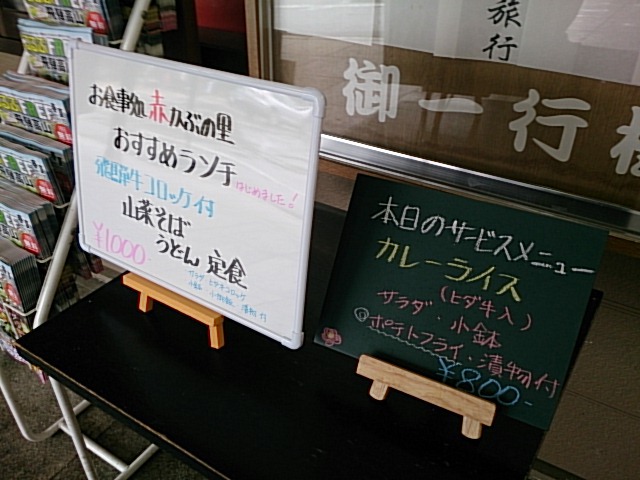 お食事処 赤かぶの里
おすすめランチ
はじめました!
飛騨牛コロッケ付
山菜そば
うどん 定食
¥1000-
サラダ
小鉢
漬物付
本日のサービスメニュー
カレーライス
(ヒダ牛入)
サラダ・小鉢
ポテトフライ・漬物付
¥800-
旅行
御一行様